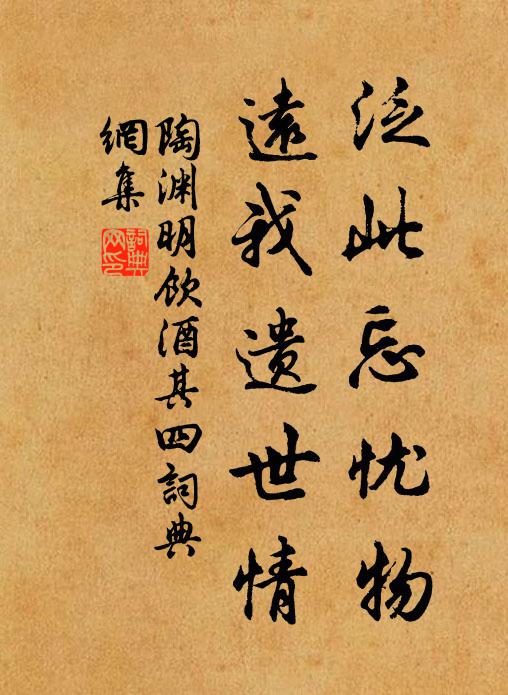 泛此忘忧物
遠我遺世情
陶渊明飲酒其四詞典
網集
詞典
网印